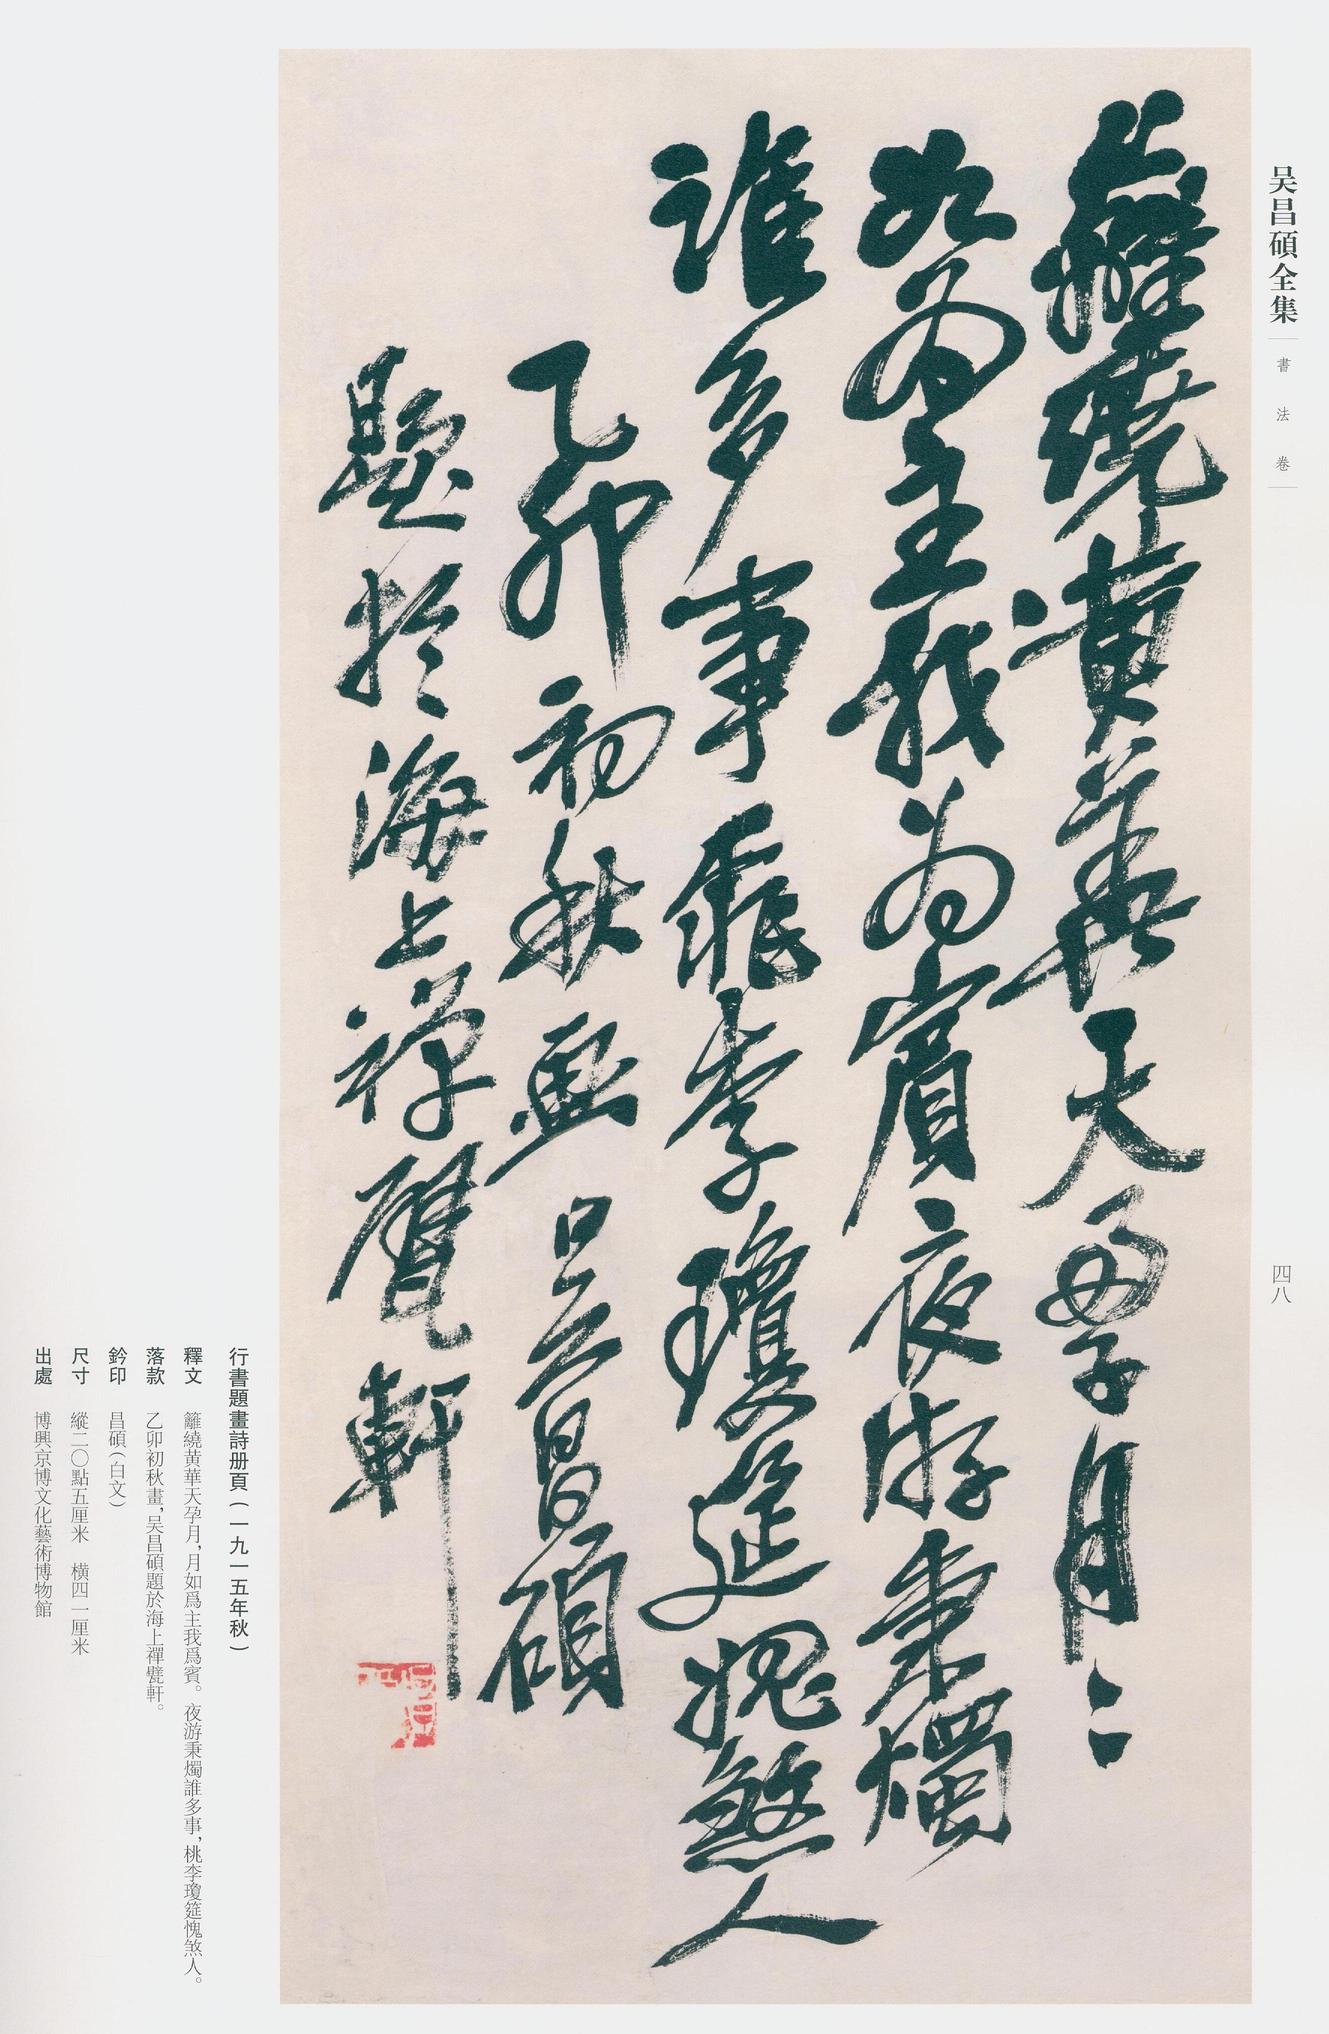 吴昌碩全集
書法卷
四八
籬繞黃華天孕月〻
如為主我為賓夜游秉燭
誰多事桃李瓊筵愧煞人
乙卯初秋畫吴昌碩
題於海上禪甓軒
行書題畫詩册頁（一九一五年秋）
釋文 籬繞黄華天孕月，月如爲主我爲賓。夜游秉燭誰多事，桃李瓊筵愧煞人。
落款 乙卯初秋畫，吴昌碩題於海上禪甓軒。
鈐印 昌碩（白文）
尺寸 縱二〇點五厘米 橫四一厘米
出處 博興京博文化藝術博物館